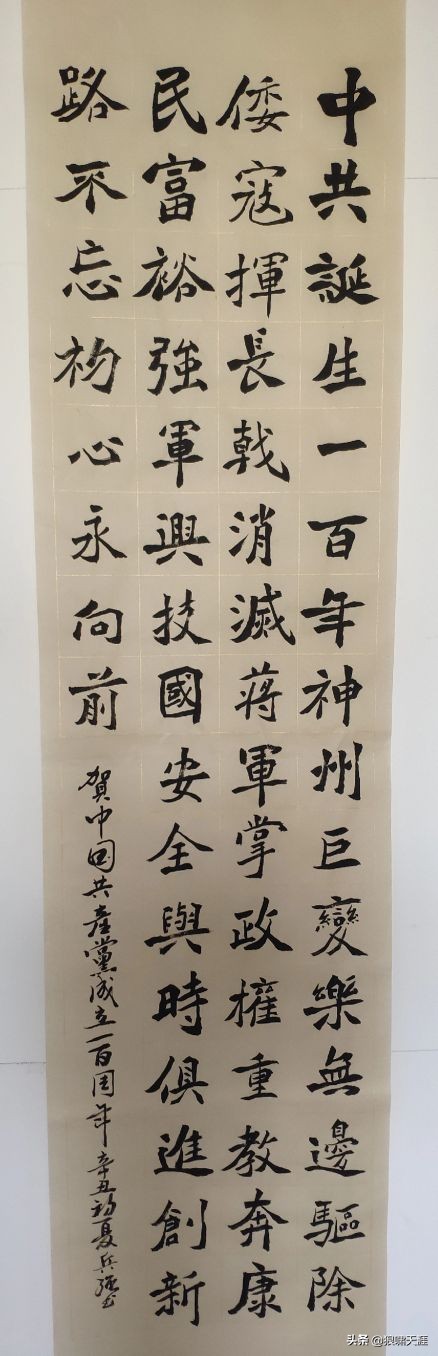 中共誕生一百年神州巨變樂無邊驅除
倭寇揮長戟消滅蔣軍掌政權重教奔康
民富裕強軍興技國安全與時俱進創新
路不忘初心永向前
賀中国共產黨成立一百周年 辛丑初夏兵強书
头条 @狼啸天涯